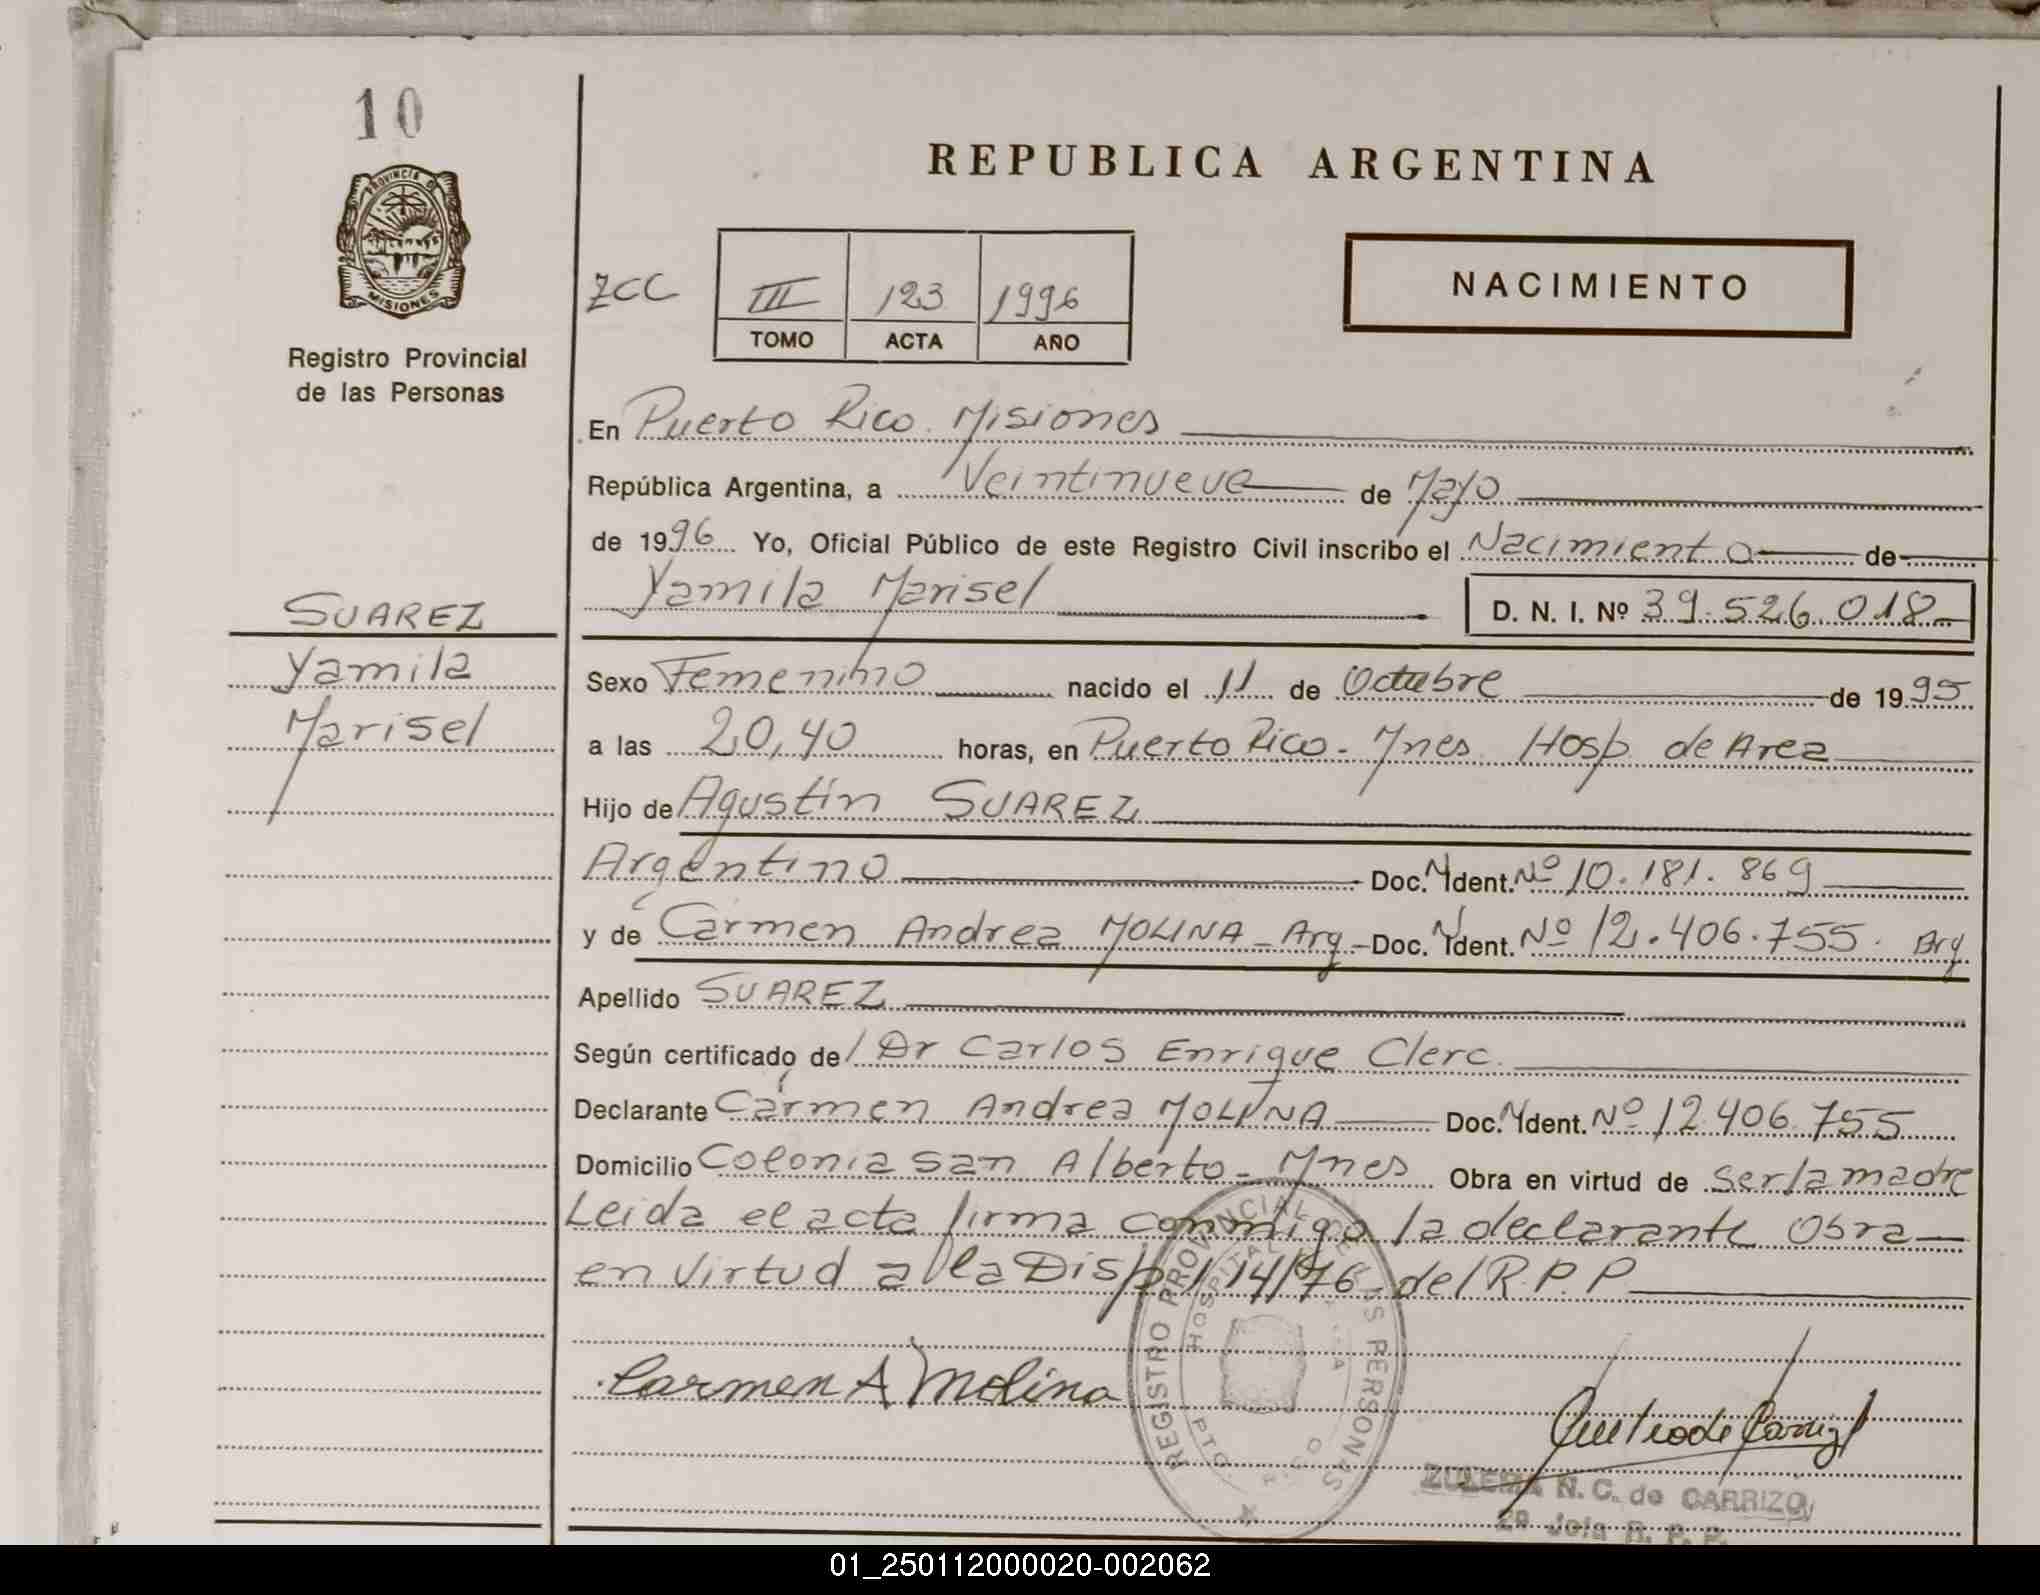 10
PROVINCIA DE
MISIONES
Registro Provincial
de las Personas
SUAREZ
Yamila
Marisel
REPUBLICA ARGENTINA
ZCC
III 123 1996
TOMO ACTA AÑO
NACIMIENTO
En Puerto Rico. Misiones
República Argentina, a Veintinueve de Mayo
de 1996 Yo, Oficial Público de este Registro Civil inscribo el Nacimiento de
Yamila Marisel D. N. I. Nº 39.526.018
Sexo Femenino nacido el 11 de Octubre de 1995
a las 20,40 horas, en Puerto Rico - Mnes. Hosp. de Area
Hijo de Agustín SUAREZ
Argentino Doc. Ident. Nº 10.181.869
y de Carmen Andrea MOLINA - Arg - Doc. Ident. Nº 12.406.755. Arg
Apellido SUAREZ
Según certificado de Dr Carlos Enrique Clerc.
Declarante Carmen Andrea MOLINA Doc. Ident. Nº 12406.755
Domicilio Colonia San Alberto - Mnes Obra en virtud de ser la madre
Leida el acta firma conmigo la declarante Obra
en virtud a la Disp. 114/76 del R.P.P
Carmen A Molina
REGISTRO PROVINCIAL DE LAS PERSONAS
HOSPITAL
PTO. RICO
ZULEMA N. C. de CARRIZO
2a Jefa R. P. P.
01_250112000020-002062